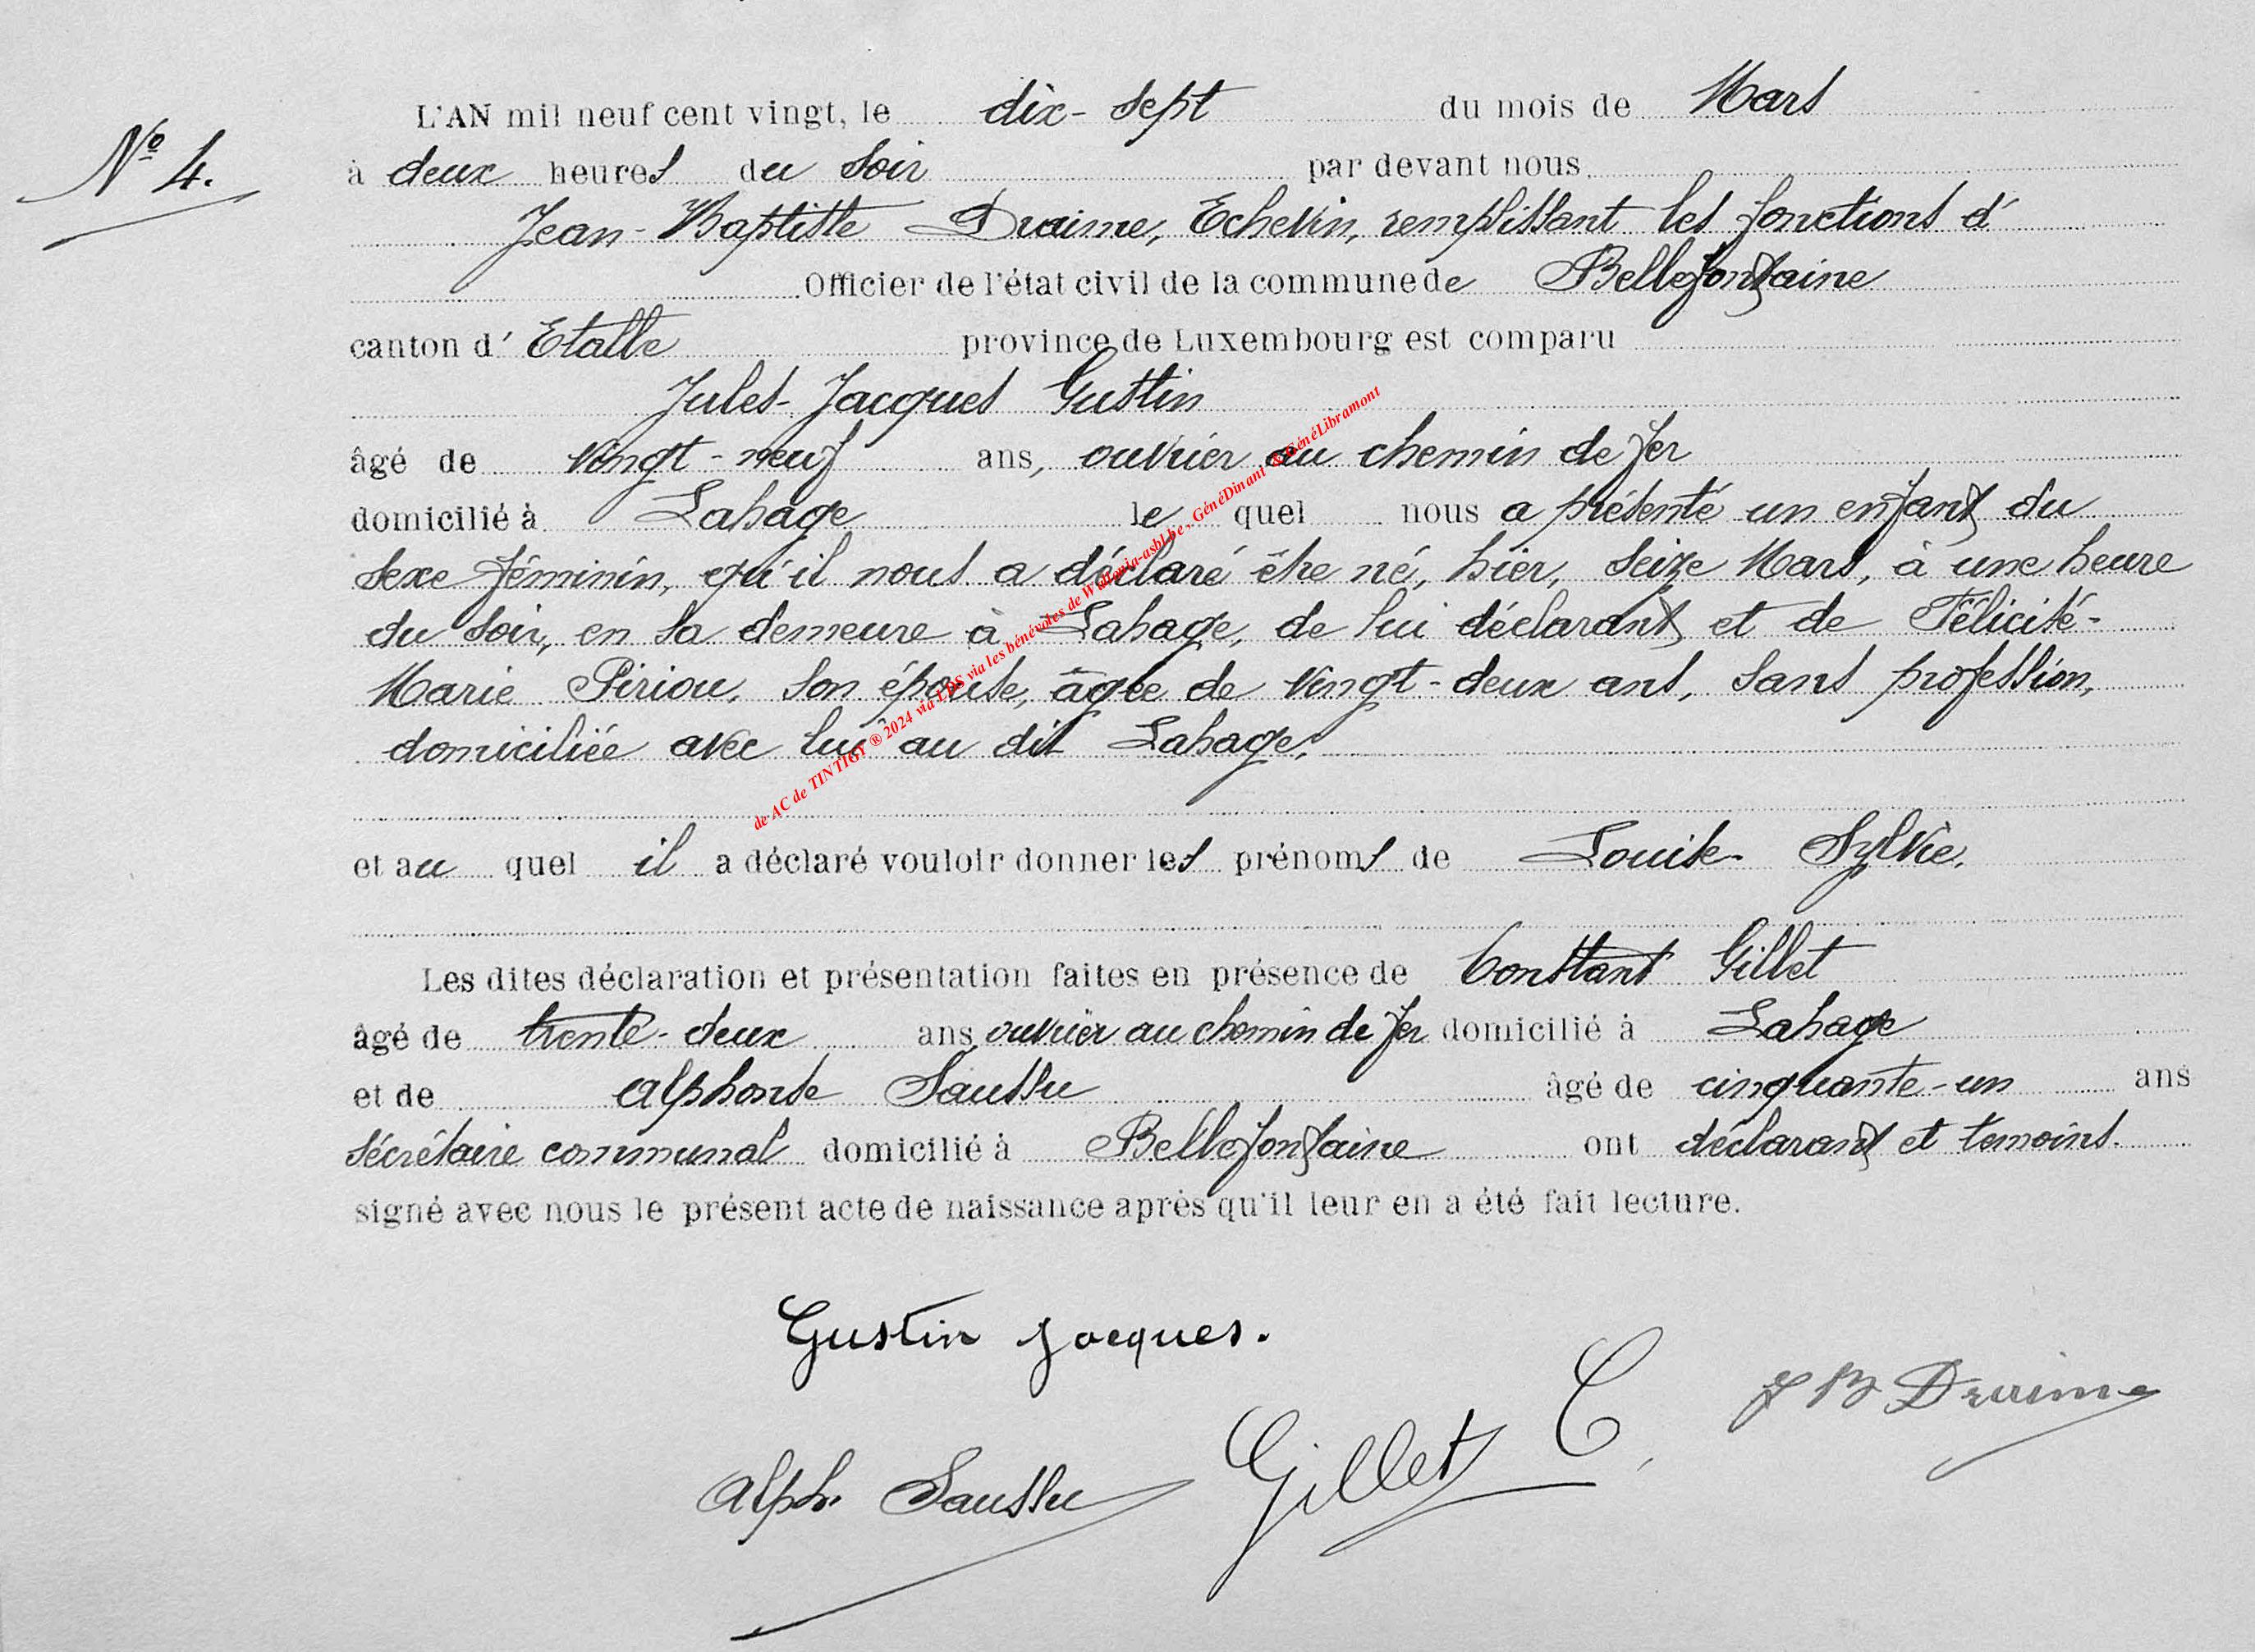 N° 4.
L'AN mil neuf cent vingt, le dix-sept du mois de Mars
à deux heures du soir par devant nous
Jean-Baptiste Draime, Echevin, remplissant les fonctions d'
Officier de l'état civil de la commune de Bellefontaine
canton d' Etalle province de Luxembourg est comparu
Jules-Jacques Gustin
âgé de vingt-neuf ans, ouvrier au chemin de fer
domicilié à Lahage lequel nous a présenté un enfant du
sexe féminin, qu'il nous a déclaré être né, hier, seize Mars, à une heure
du soir, en sa demeure à Lahage, de lui déclarant et de Félicité-
Marie Piriou, son épouse, âgée de vingt-deux ans, sans profession,
domiciliée avec lui au dit Lahage,
et au quel il a déclaré vouloir donner les prénoms de Louise-Sylvie.
Les dites déclaration et présentation faites en présence de Constant Gillet
âgé de trente-deux ans, ouvrier au chemin de fer domicilié à Lahage
et de Alphonse Saussu âgé de cinquante-un ans
sécrétaire communal domicilié à Bellefontaine ont déclarant et temoins.
signé avec nous le présent acte de naissance après qu'il leur en a été fait lecture.
Gustin Jacques.
J B Draime
Alph. Saussu Gillet C.
de AC de TINTIGY ® 2024 via LDS via les bénévoles de Wallonia-asbl.be, GénéDinant & GénéLibramont